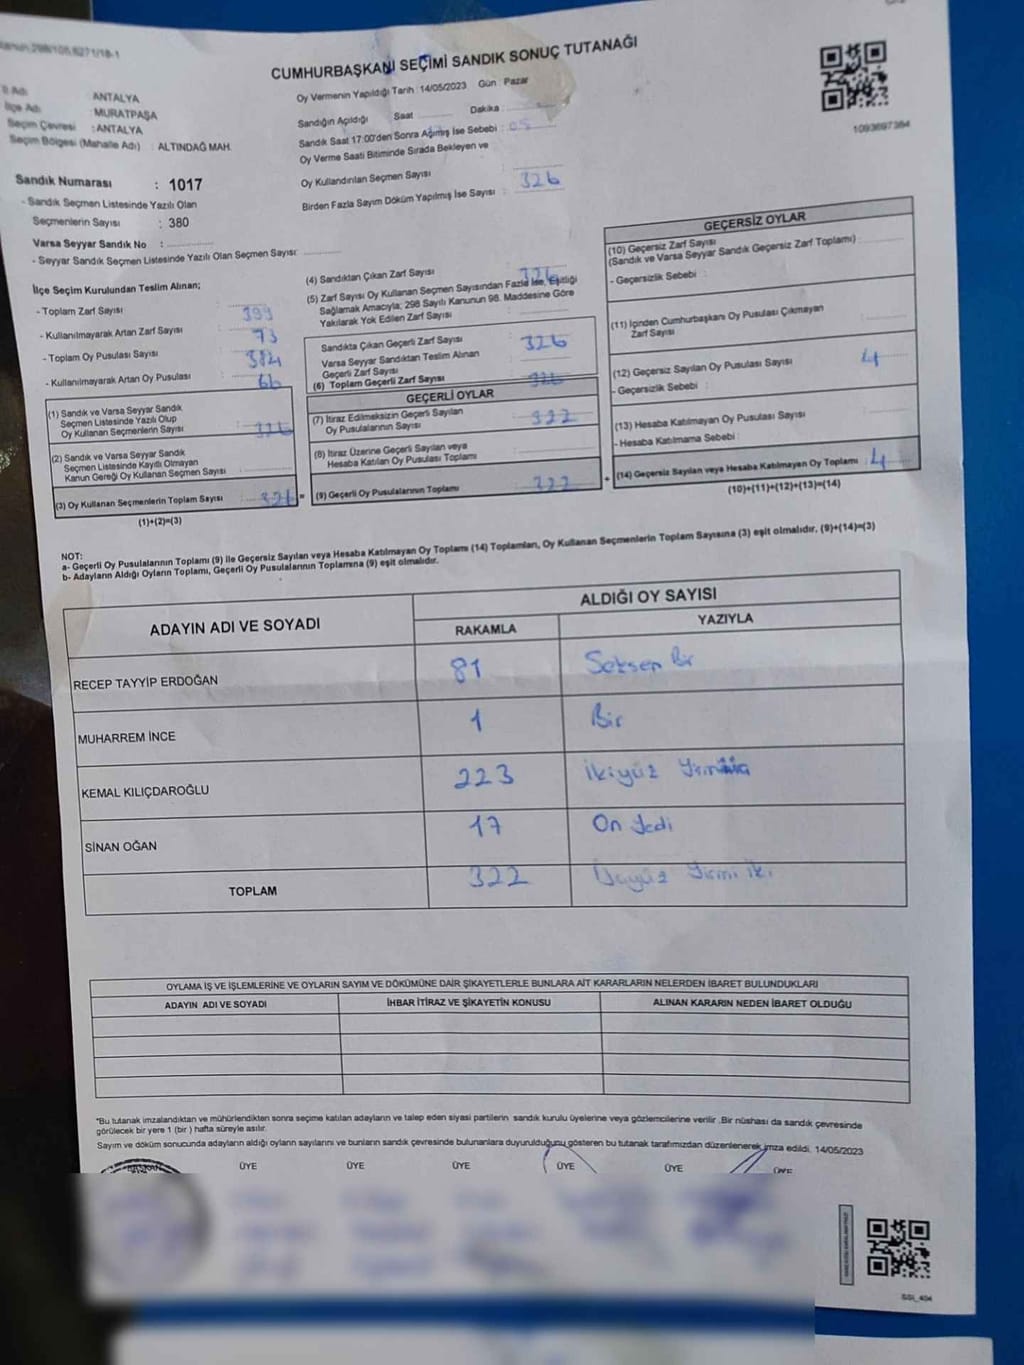 CUMHURBAŞKANI SEÇİMİ SANDIK SONUÇ TUTANAĞI
Oy Vermenin Yapıldığı Tarih : 14/05/2023 Gün : Pazar
İl Adı : ANTALYA
İlçe Adı : MURATPAŞA
Seçim Çevresi : ANTALYA
Seçim Bölgesi (Mahalle Adı) : ALTINDAĞ MAH.
Sandık Numarası : 1017
- Sandık Seçmen Listesinde Yazılı Olan
Seçmenlerin Sayısı : 380
Varsa Seyyar Sandık No :
- Seyyar Sandık Seçmen Listesinde Yazılı Olan Seçmen Sayısı:
Sandığın Açıldığı Saat Dakika :
Sandık Saat 17:00'den Sonra Açılmış İse Sebebi :
Oy Verme Saati Bitiminde Sırada Bekleyen ve
Oy Kullandırılan Seçmen Sayısı : 326
Birden Fazla Sayım Döküm Yapılmış İse Sayısı :
1093697364
İlçe Seçim Kurulundan Teslim Alınan;
- Toplam Zarf Sayısı : 399
- Kullanılmayarak Artan Zarf Sayısı : 73
- Toplam Oy Pusulası Sayısı :
- Kullanılmayarak Artan Oy Pusulası : 66
(1) Sandık ve Varsa Seyyar Sandık
Seçmen Listesinde Yazılı Olup
Oy Kullanan Seçmenlerin Sayısı : 326
(2) Sandık ve Varsa Seyyar Sandık
Seçmen Listesinde Kayıtlı Olmayan
Kanun Gereği Oy Kullanan Seçmen Sayısı :
(3) Oy Kullanan Seçmenlerin Toplam Sayısı : 326 =
(1)+(2)=(3)
(4) Sandıktan Çıkan Zarf Sayısı : 326
(5) Zarf Sayısı Oy Kullanan Seçmen Sayısından Fazla İse, Eşitliği
Sağlamak Amacıyla; 298 Sayılı Kanunun 98. Maddesine Göre
Yakılarak Yok Edilen Zarf Sayısı :
Sandıkta Çıkan Geçerli Zarf Sayısı : 326
Varsa Seyyar Sandıktan Teslim Alınan
Geçerli Zarf Sayısı :
(6) Toplam Geçerli Zarf Sayısı : 326
GEÇERLİ OYLAR
(7) İtiraz Edilmeksizin Geçerli Sayılan
Oy Pusulalarının Sayısı : 322
(8) İtiraz Üzerine Geçerli Sayılan veya
Hesaba Katılan Oy Pusulası Toplamı :
(9) Geçerli Oy Pusulalarının Toplamı : 322 +
GEÇERSİZ OYLAR
(10) Geçersiz Zarf Sayısı
(Sandık ve Varsa Seyyar Sandık Geçersiz Zarf Toplamı) :
- Geçersizlik Sebebi :
(11) İçinden Cumhurbaşkanı Oy Pusulası Çıkmayan
Zarf Sayısı :
(12) Geçersiz Sayılan Oy Pusulası Sayısı : 4
- Geçersizlik Sebebi :
(13) Hesaba Katılmayan Oy Pusulası Sayısı :
- Hesaba Katılmama Sebebi :
(14) Geçersiz Sayılan veya Hesaba Katılmayan Oy Toplamı : 4
(10)+(11)+(12)+(13)=(14)
NOT:
a- Geçerli Oy Pusulalarının Toplamı (9) ile Geçersiz Sayılan veya Hesaba Katılmayan Oy Toplamı (14) Toplamları, Oy Kullanan Seçmenlerin Toplam Sayısına (3) eşit olmalıdır. (9)+(14)=(3)
b- Adayların Aldığı Oyların Toplamı, Geçerli Oy Pusulalarının Toplamına (9) eşit olmalıdır.
ADAYIN ADI VE SOYADI ALDIĞI OY SAYISI
RAKAMLA YAZIYLA
RECEP TAYYİP ERDOĞAN 81 Seksen Bir
MUHARREM İNCE 1 Bir
KEMAL KILIÇDAROĞLU 223 İkiyüz
SİNAN OĞAN 17 On Yedi
TOPLAM 322 Üçyüz Yirmi İki
OYLAMA İŞ VE İŞLEMLERİNE VE OYLARIN SAYIM VE DÖKÜMÜNE DAİR ŞİKAYETLERLE BUNLARA AİT KARARLARIN NELERDEN İBARET BULUNDUKLARI
ADAYIN ADI VE SOYADI İHBAR İTİRAZ VE ŞİKAYETİN KONUSU ALINAN KARARIN NEDEN İBARET OLDUĞU
*Bu tutanak imzalandıktan ve mühürlendikten sonra seçime katılan adayların ve talep eden siyasi partilerin sandık kurulu üyelerine veya gözlemcilerine verilir .Bir nüshası da sandık çevresinde
görülecek bir yere 1 (bir ) hafta süreyle asılır.
Sayım ve döküm sonucunda adayların aldığı oyların sayılarını ve bunların sandık çevresinde bulunanlara duyurulduğunu gösteren bu tutanak tarafımızdan düzenlenerek imza edildi. 14/05/2023
ÜYE ÜYE ÜYE ÜYE ÜYE ÜYE
SSI_404